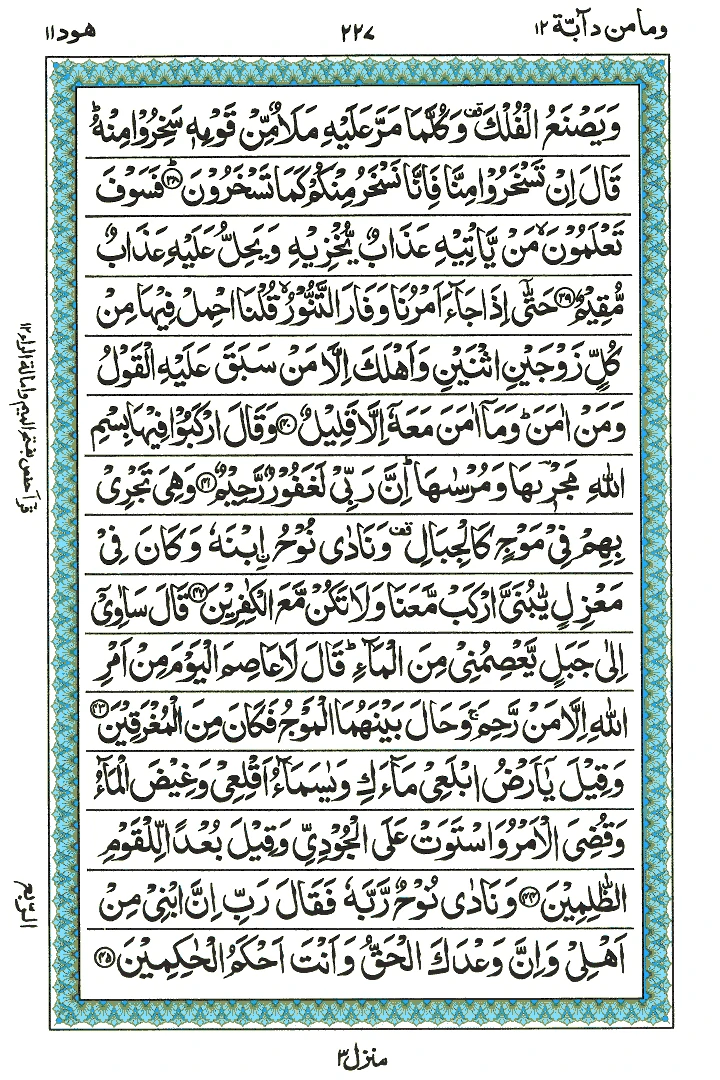 وما من دآبّة ١٢
٢٢٧
هود ١١
وَيَصْنَعُ الْفُلْكَ ۟ قف وَكُلَّمَا مَرَّ عَلَيْهِ مَلَاٌ مِّنْ قَوْمِهٖ سَخِرُوْا مِنْهُ ؕ
قَالَ اِنْ تَسْخَرُوْا مِنَّا فَاِنَّا نَسْخَرُ مِنْكُمْ كَمَا تَسْخَرُوْنَ ؕ ﴿۳۸﴾ فَسَوْفَ
تَعْلَمُوْنَ ۙ مَنْ يَّاْتِيْهِ عَذَابٌ يُّخْزِيْهِ وَيَحِلُّ عَلَيْهِ عَذَابٌ
مُّقِيْمٌ ﴿۳۹﴾ حَتّٰۤى اِذَا جَآءَ اَمْرُنَا وَفَارَ التَّنُّوْرُ ۙ قُلْنَا احْمِلْ فِيْهَا مِنْ
كُلٍّ زَوْجَيْنِ اثْنَيْنِ وَاَهْلَكَ اِلَّا مَنْ سَبَقَ عَلَيْهِ الْقَوْلُ
وَمَنْ اٰمَنَ ؕ وَمَاۤ اٰمَنَ مَعَهٗۤ اِلَّا قَلِيْلٌ ﴿۴۰﴾ وَقَالَ ارْكَبُوْا فِيْهَا بِسْمِ
اللّٰهِ مَجْرٖىهَا وَمُرْسٰىهَا ؕ اِنَّ رَبِّىْ لَغَفُوْرٌ رَّحِيْمٌ ﴿۴۱﴾ وَهِىَ تَجْرِىْ
بِهِمْ فِىْ مَوْجٍ كَالْجِبَالِ قف وَنَادٰى نُوْحُ ۨ ابْنَهٗ وَكَانَ فِىْ
مَعْزِلٍ يّٰبُنَىَّ ارْكَبْ مَّعَنَا وَلَا تَكُنْ مَّعَ الْكٰفِرِيْنَ ﴿۴۲﴾ قَالَ سَاٰوِىْۤ
اِلٰى جَبَلٍ يَّعْصِمُنِىْ مِنَ الْمَآءِ ؕ قَالَ لَا عَاصِمَ الْيَوْمَ مِنْ اَمْرِ
اللّٰهِ اِلَّا مَنْ رَّحِمَ ۚ وَحَالَ بَيْنَهُمَا الْمَوْجُ فَكَانَ مِنَ الْمُغْرَقِيْنَ ﴿۴۳﴾
وَقِيْلَ يٰۤاَرْضُ ابْلَعِىْ مَآءَكِ وَيٰسَمَآءُ اَقْلِعِىْ وَغِيْضَ الْمَآءُ
وَقُضِىَ الْاَمْرُ وَاسْتَوَتْ عَلَى الْجُوْدِىِّ وَقِيْلَ بُعْدًا لِّلْقَوْمِ
الظّٰلِمِيْنَ ﴿۴۴﴾ وَنَادٰى نُوْحٌ رَّبَّهٗ فَقَالَ رَبِّ اِنَّ ابْنِىْ مِنْ
اَهْلِىْ وَاِنَّ وَعْدَكَ الْحَقُّ وَاَنْتَ اَحْكَمُ الْحٰكِمِيْنَ ﴿۴۵﴾
قرأ حفص بفتح الميم وامالة الراء ١٢
الربع
منزل ٣